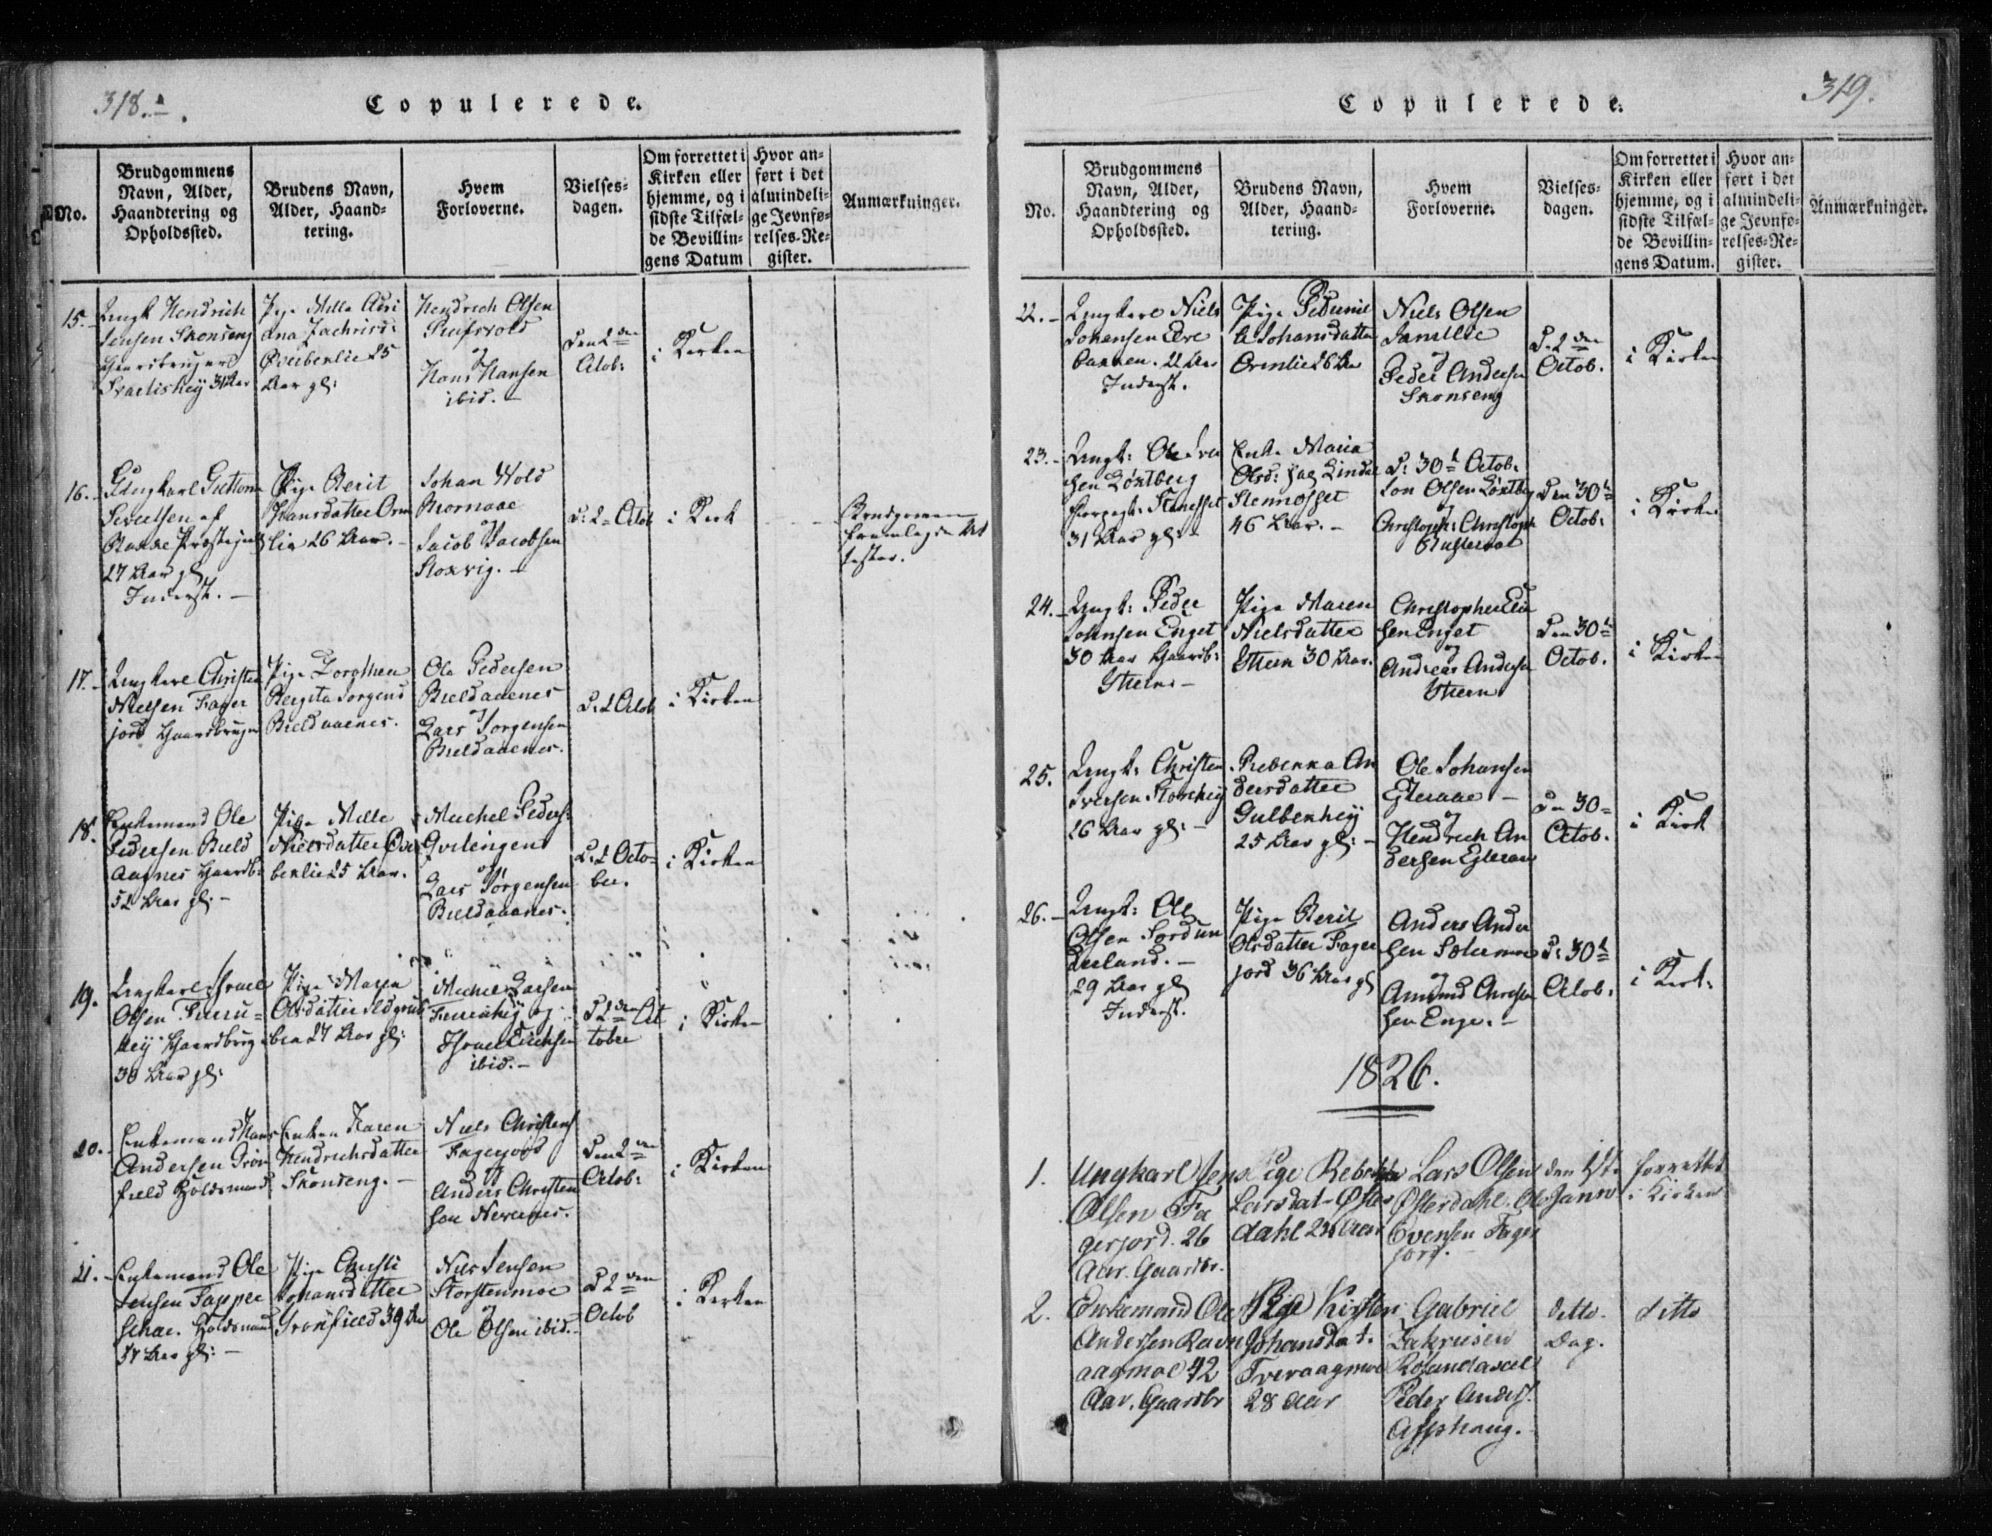 318.
Copulerede.
No.
Brudgommens
Navn, Alder,
Haandtering og
Opholdssted.
Brudens Navn,
Alder, Haand-
tering.
Hvem
Forloverne.
Vielses-
dagen.
Om forrettet i
Kirken eller
hjemme, og i
sidste Tilfæl-
de Bevillin-
gens Datum
Hvor an-
ført i det
almindeli-
ge Jevnfø-
relses-Re-
gister.
Anmærkninger.
15.
Ungk Hendrich
Jensen Skonseng
Gaardbruger
31 Aar
Pige Mille Adri
ana Zachrisd:
Øveibenlie 25
Aar gl:
Hendrich Olsen
og
Hans Hansen
ibid.
Den 2den
Octob:
i Kirken
16.
Ungkarl Guttorm
Sivertsen af
Præstegield
27 Aar gl
Inderst.
Pige Berit
Hansdatter Orm
lie 26 Aar.
Johan Wold
og
Jacob Jacobsen
Stoxvig.
D: 2 Octob
i Kirk
Brudgommen
fremlagde At
tester.
17.
Ungkarl Christen
Nielsen Fager
jord Gaardbruger
Pige Dorothea
Bergita Jørgensd
Bieldaaenes.
Ole Pedersen
Bieldaaenes
og
Lars Jørgensen
Bieldaaenes.
D: 2 Octob
i Kirken
18.
Enkemand Ole
Pedersen Bield
aagnes Gaardb:
52 Aar gl.
Pige Mille
Nielsdatter Øvei
benlie 25 Aar.
Michel Peders:
Qvitengen
og
Lars Jørgensen
Bieldaaenes.
D: 2 Octo-
ber.
i Kirken
19.
Ungkarl Israel
Olsen Furu-
hey Gaardbrug
30 Aar gl:
Pige Maria
Olsdatter Sildgrub
ben 27 Aar gl:
Michel Larsen
Furuhey og
Israel Erichsen
ibid.
D 2den Oc
tobre
i Kirken
20.
Enkemand Hans
Andersen Grøn
field Holdsmand
Enken Karen
Hendrichsdatter
Skonseng.
Niels Christens
Fagerjord
og
Anders Christen
sen Nevernes.
Den 2den
Octob:
i Kirken
21.
Enkemand Ole
Jensen Tapper
57 Aar gl:
Pige Chirsti
Johansdatter
Grønfield 39 Aar
Nils Jensen
Storstenmoe
og
Ole Olsen ibid.
D 2den
Octob
i Kirken
319.
Copulerede.
No.
Brudgommens
Navn, Alder,
Haandtering og
Opholdssted.
Brudens Navn,
Alder, Haand-
tering.
Hvem
Forloverne.
Vielses-
dagen.
Om forrettet i
Kirken eller
hjemme, og i
sidste Tilfæl-
de Bevillin-
gens Datum.
Hvor an-
ført i det
almindeli-
ge Jevnfø-
relses-Re-
gister.
Anmærkninger.
22.
Ungkarl Niels
Johansen
22 Aar
Inderst.
Pige Pedernil
la Johansdatter
Ormlie 26 Aar
Niels Olsen
Jamtlie
og
Peder Andersen
Skonseng
D. 2den
Octob.
i Kirken
23.
Ungk: Ole Iver
sen Løxtberg
31 Aar gl:
Enke Maria
Olsd:
Stennesset
46 Aar.
D: 30te Octob.
Jon Olsen Løxtberg
og
Christoph: Christoph
Den 30te
Octob:
i Kirken
24.
Ungk: Peder
Johnsen Enget
30 Aar Gaardb:
Ytteren
Pige Maren
Nielsdatter
Ytteren 30 Aar.
Christopher
sen Enget
og
Andreas Andersen
Ytteren
Den 30te
Octob.
i Kirken
25.
Ungk: Christen
Iversen Storhey
26 Aar gl:
Rebekka An
dersdatter
Gulbenhey
25 Aar gl:
Ole Johansen
Ejteraae
og
Hendrich An
dersen Ejteraae
Den 30te
Octob.
i Kirk
26.
Ungk: Ole
Olsen
29 Aar gl
Inderst.
Pige Berit
Olsdatter Fager
jord 36 Aar gl
Anders Ander
sen
og
Amund Christen
sen Enge.
D: 30te
Octob.
i Kirk:
1826.
1.
Ungkarl Jens
Olsen Fa
gerjord. 26
Aar. Gaardbr.
Pige Rebekka
Larsdat. Øster
dahl 23 Aar
Lars Olsen
Østerdahl. Ole
Evensen Fager
jord.
den 1ste
Janu
forrettet
i Kirken
2.
Enkemand Ole
Andersen Ravn
aagmoe 42
Aar. Gaardbr
Pige Kirsten
Johansdat.
Tveraagmoe
28 Aar
Gabriel
Zakrisen
Røsandaxel
Peder Anders.
Asphaug.
ditto.
Dag.
ditto